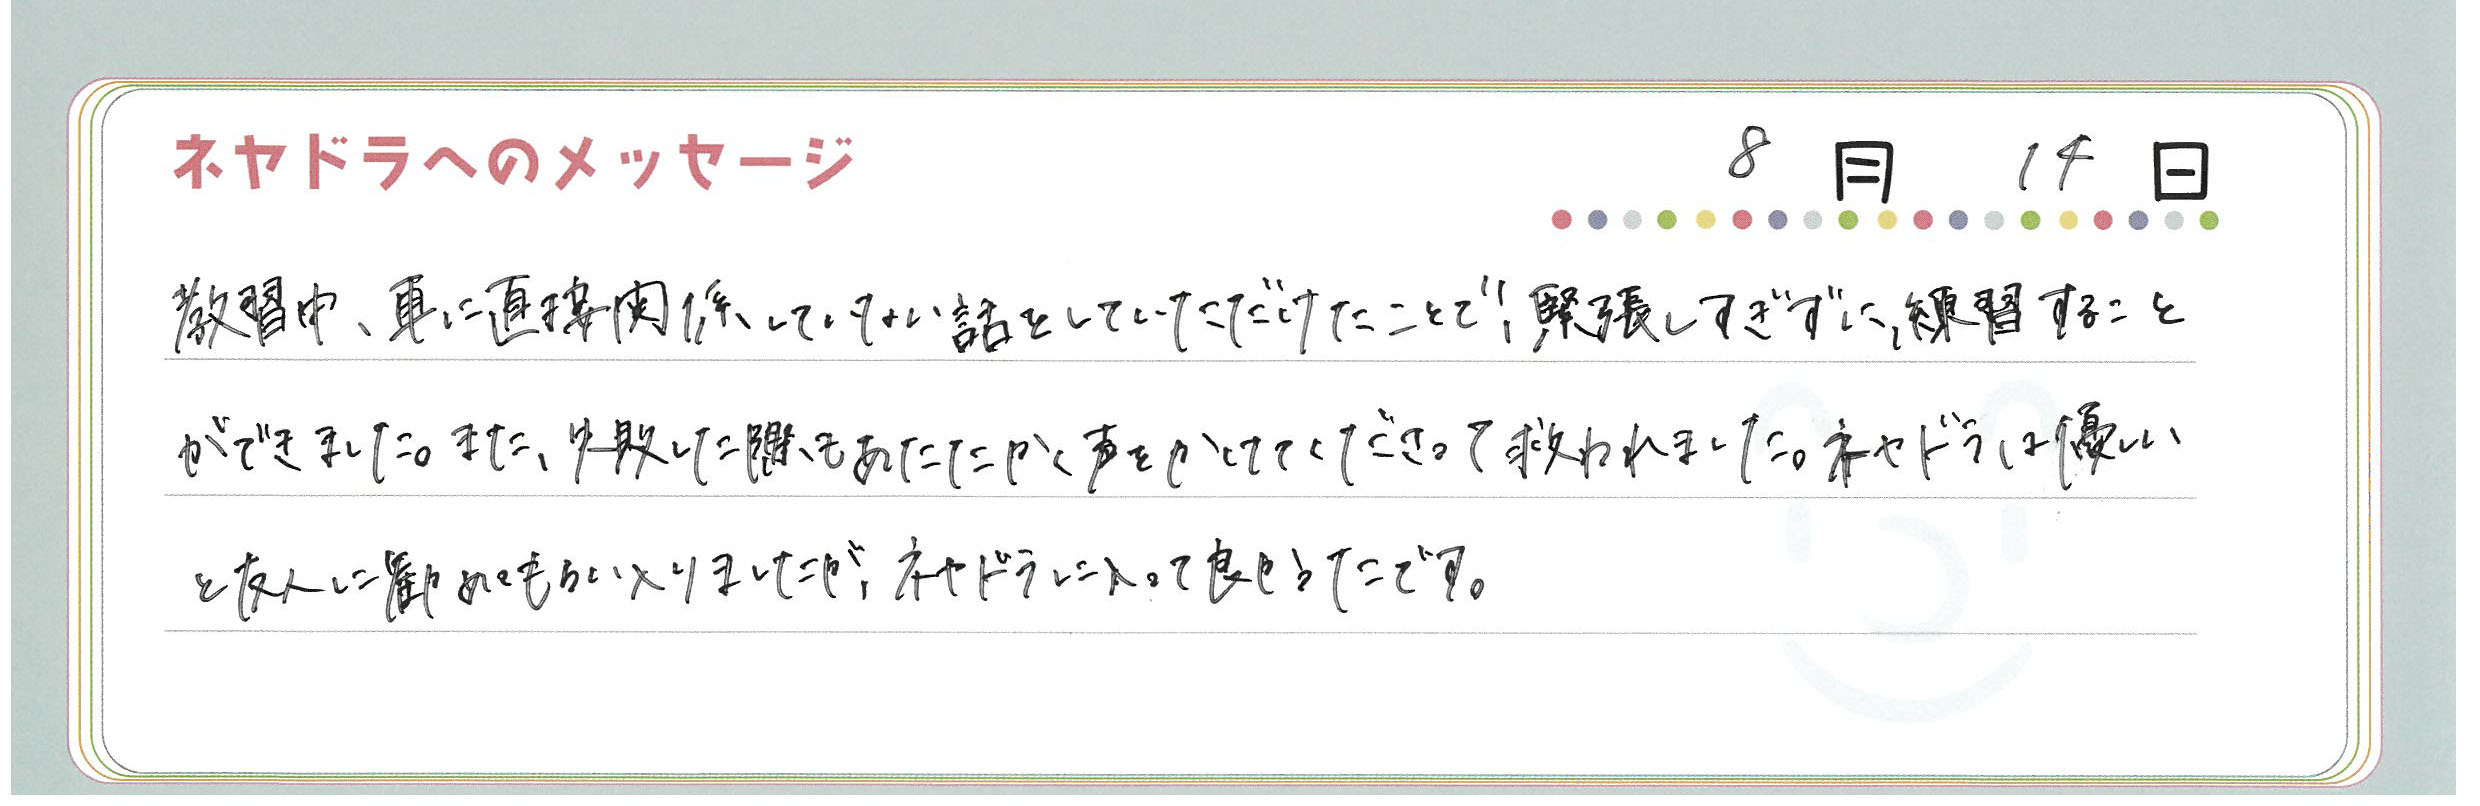 ネヤドラへのメッセージ 8月 14日
教習中、車に直接関係していない話をしていただけたことで、緊張しすぎずに、練習すること
ができました。また、失敗した際もあたたかく声をかけてくださって救われました。ネヤドラは優しい
と友人に勧めてもらい入りましたが、ネヤドラに入って良かったです。